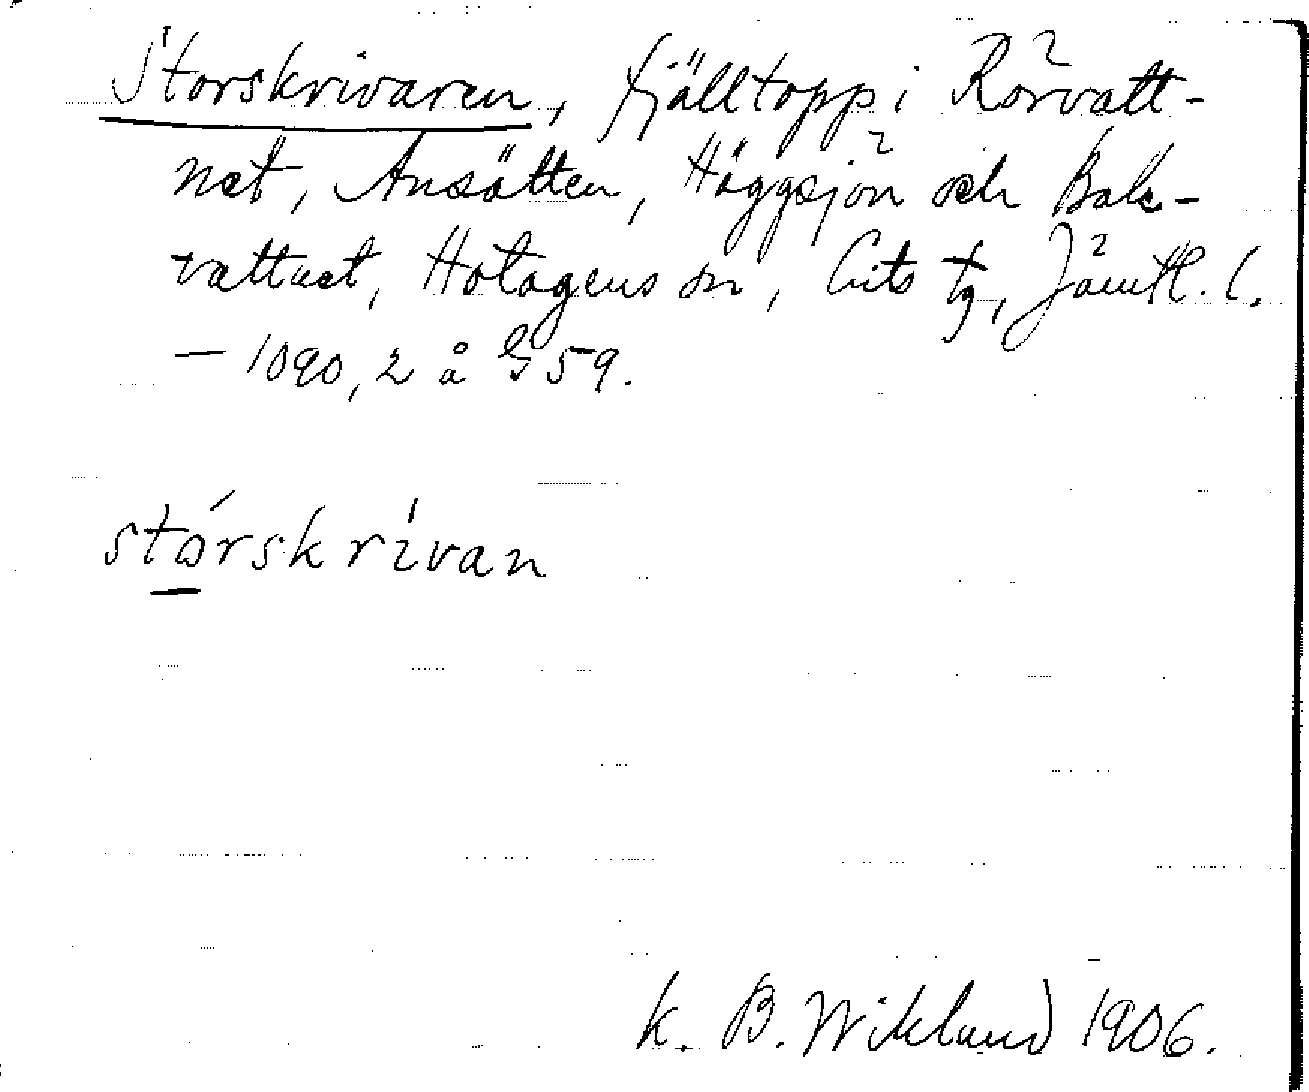 Storskrivaren, fjälltopp i Rörvatt-
net, Ansätten, Häggsjön och Bak-
vattnet, Hotagens sn, Lits tg, Jämtl. l.
— 1090, 2 å G 59.
stórskrívan
K. B. Wiklund 1906.